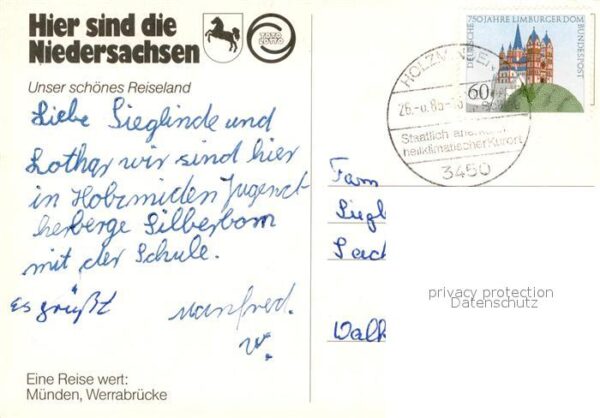 Hier sind die
Niedersachsen
TOTO
LOTTO
Unser schönes Reiseland
Liebe Sieglinde und
Lothar wir sind hier
in Holzmiden Jugend
herberge Silberborn
mit der Schule.
es grüßt Manfred.
W.
Eine Reise wert:
Münden, Werrabrücke
750 JAHRE LIMBURGER DOM
DEUTSCHE BUNDESPOST
60
HOLZMINDEN
Staatlich
heilklimatischer Kurort
3450
Fam
Siegl
Walk
privacy protection
Datenschutz